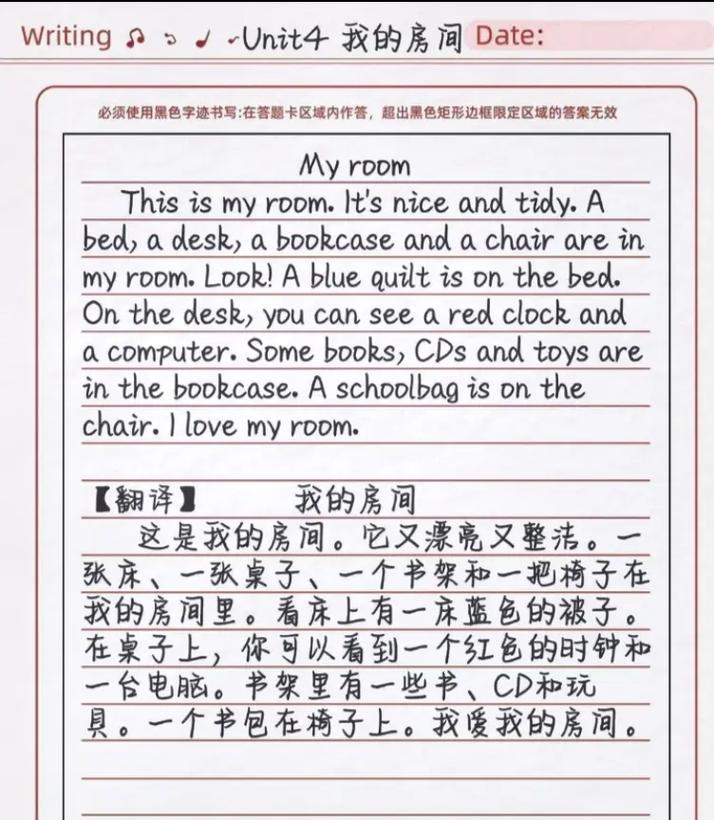 Writing Unit4 我的房间 Date:
必须使用黑色字迹书写:在答题卡区域内作答，超出黑色矩形边框限定区域的答案无效
My room
This is my room. It's nice and tidy. A
bed, a desk, a bookcase and a chair are in
my room. Look! A blue quilt is on the bed.
On the desk, you can see a red clock and
a computer. Some books, CDs and toys are
in the bookcase. A schoolbag is on the
chair. I love my room.
【翻译】 我的房间
这是我的房间。它又漂亮又整洁。一
张床、一张桌子、一个书架和一把椅子在
我的房间里。看床上有一床蓝色的被子。
在桌子上，你可以看到一个红色的时钟和
一台电脑。书架里有一些书、CD和玩
具。一个书包在椅子上。我爱我的房间。